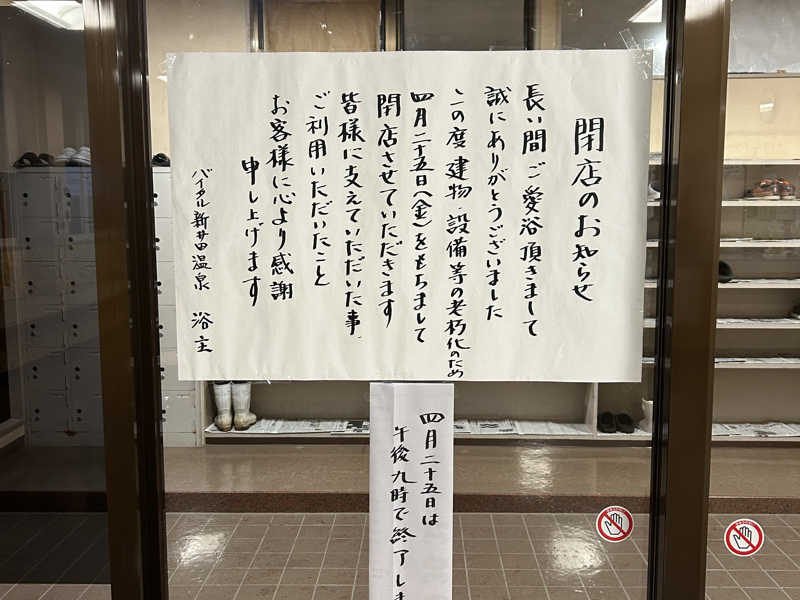 閉店のお知らせ
長い間ご愛浴頂きまして
誠にありがとうございました
この度建物設備等の老朽化のため
四月二十五日(金)をもちまして
閉店させていただきます
皆様に支えていただいた事、
ご利用いただいたこと
お客様に心より感謝
申し上げます
バイタル新井田温泉 浴主
四月二十五日は
午後九時で終了しま